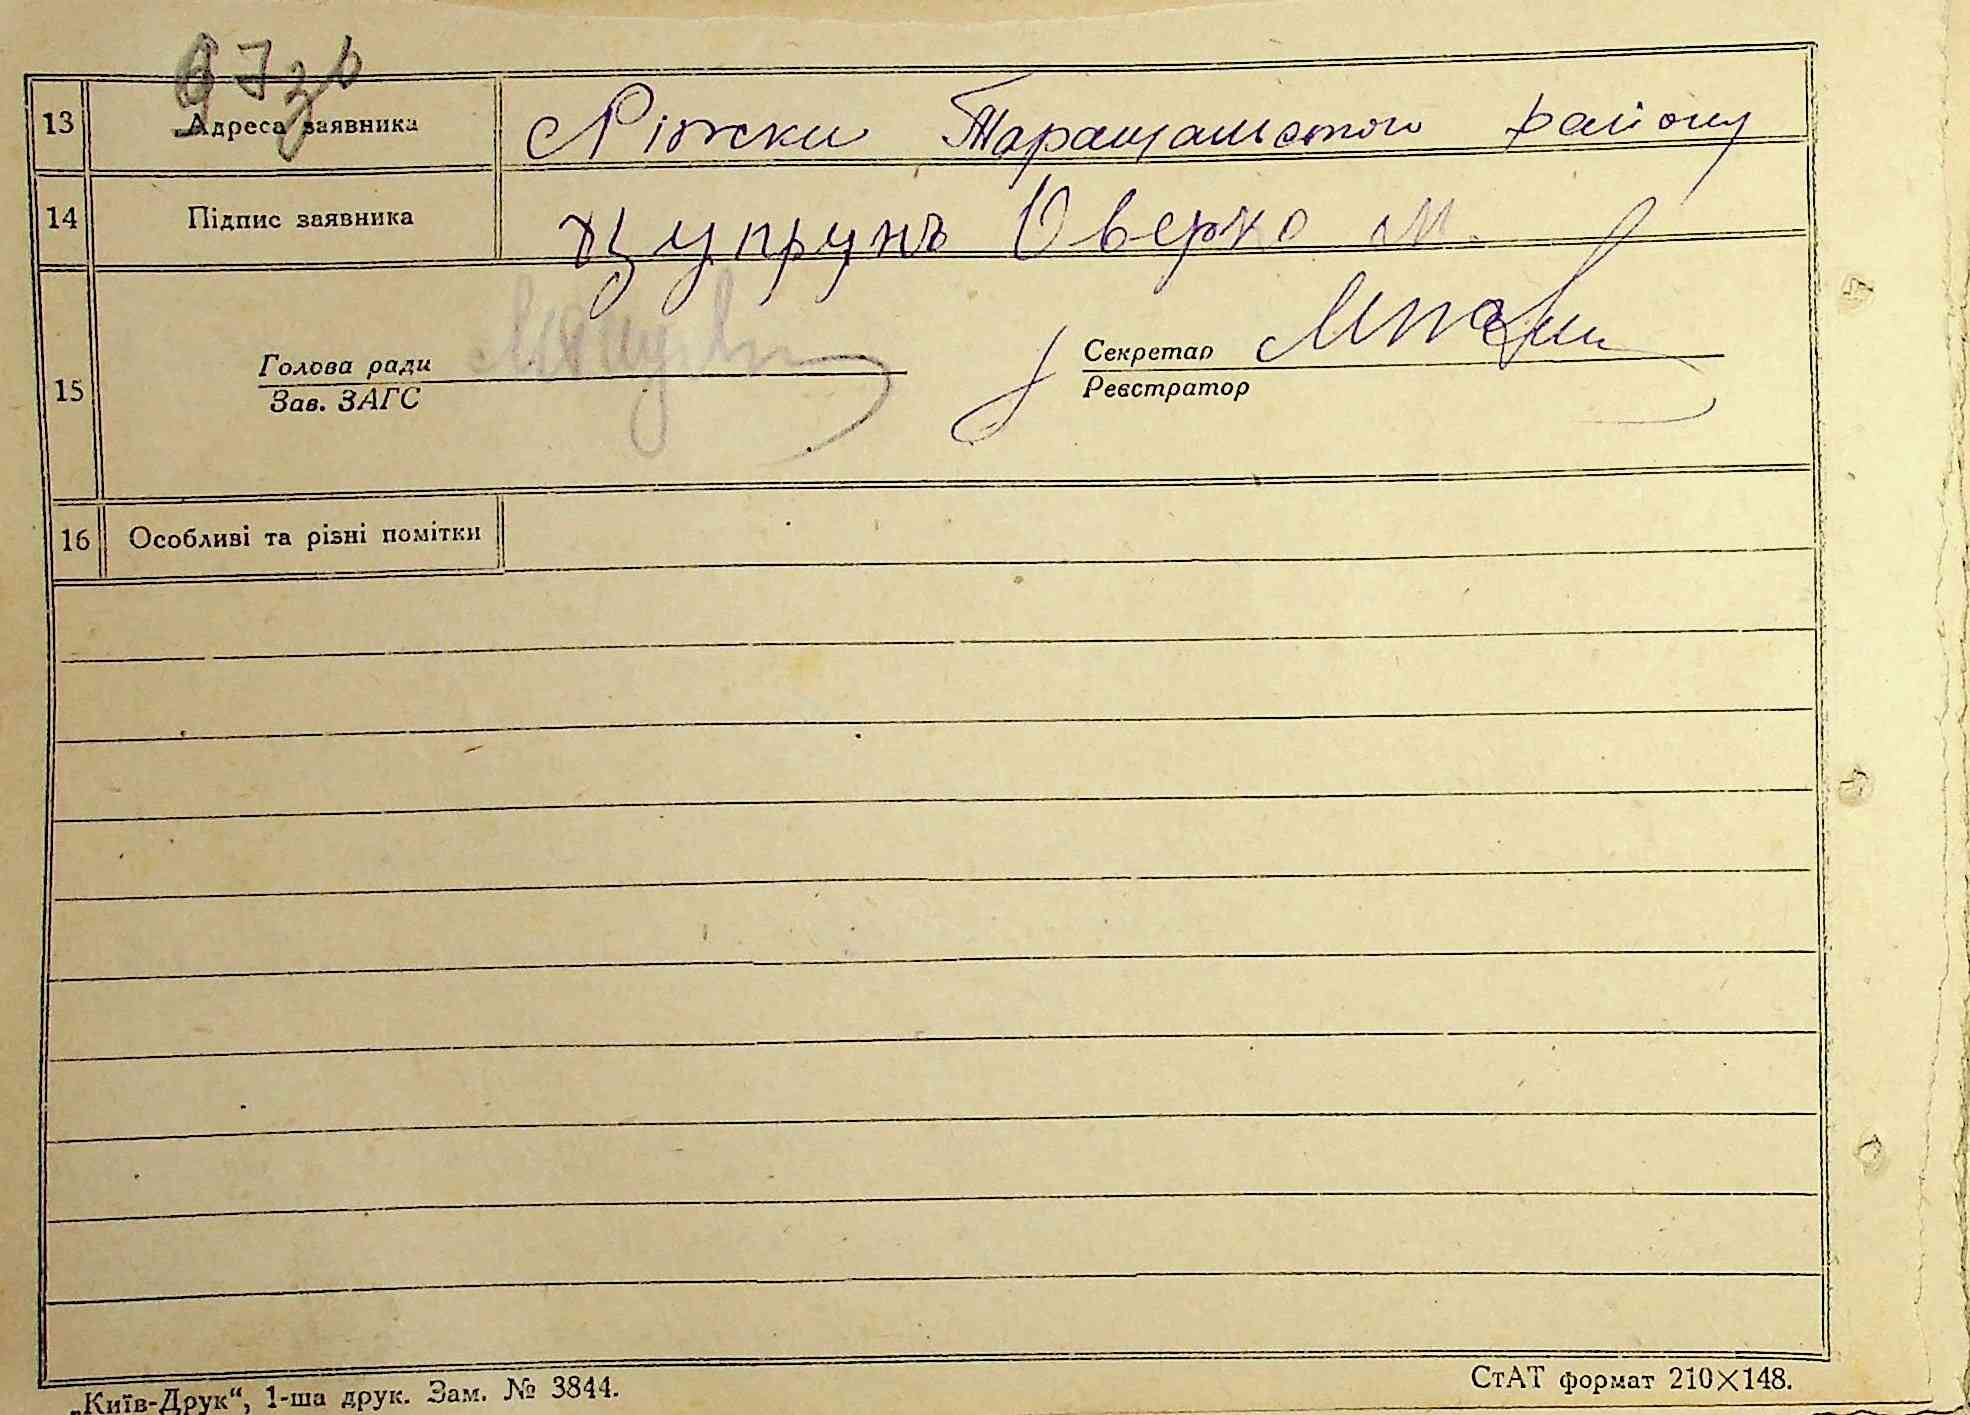 97зв
13 Адреса заявника Ріжки Таращанського району
14 Підпис заявника Цупрунъ Оверко М.
15 Голова ради Секретар
Зав. ЗАГС Реєстратор
16 Особливі та різні помітки
„Київ-Друк“, 1-ша друк. Зам. № 3844. СтАТ формат 210×148.